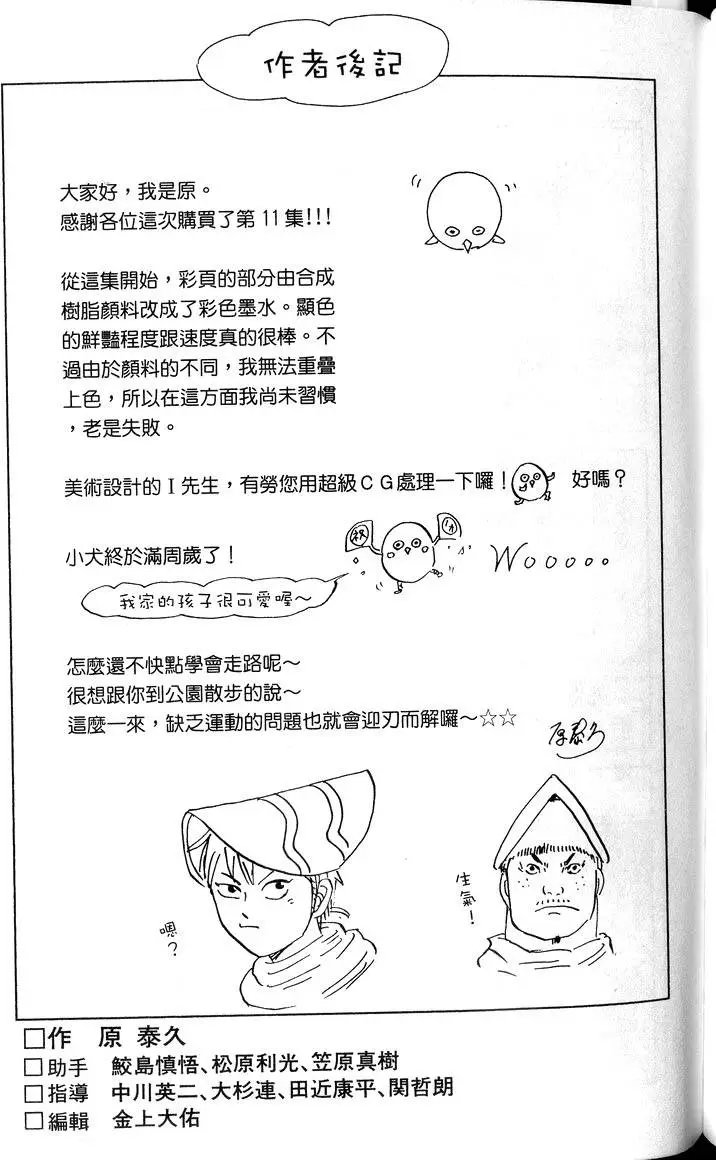 作者後記
大家好，我是原。
感謝各位這次購買了第11集!!!
從這集開始，彩頁的部分由合成
樹脂顏料改成了彩色墨水。顯色
的鮮豔程度跟速度真的很棒。不
過由於顏料的不同，我無法重疊
上色，所以在這方面我尚未習慣
，老是失敗。
美術設計的I先生，有勞您用超級CG處理一下囉！ 好嗎？
小犬終於滿周歲了！
祝
Wooooo
我家的孩子很可愛喔～
怎麼還不快點學會走路呢～
很想跟你到公園散步的說～
這麼一來，缺乏運動的問題也就會迎刃而解囉～☆☆
原泰久
嗯？
生氣！
□作 原 泰久
□助手 鮫島慎悟、松原利光、笠原真樹
□指導 中川英二、大杉連、田近康平、関哲朗
□編輯 金上大佑